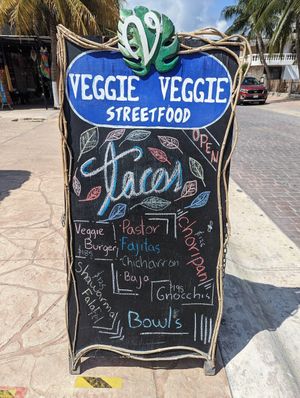 V
VEGGIE VEGGIE
STREETFOOD
OPEN
Tacos
Pastor
Fajitas
Chicharron
Baja
Veggie
Burger
Choripan
Shawarma
Falafel
$195
Gnocchis
Bowls